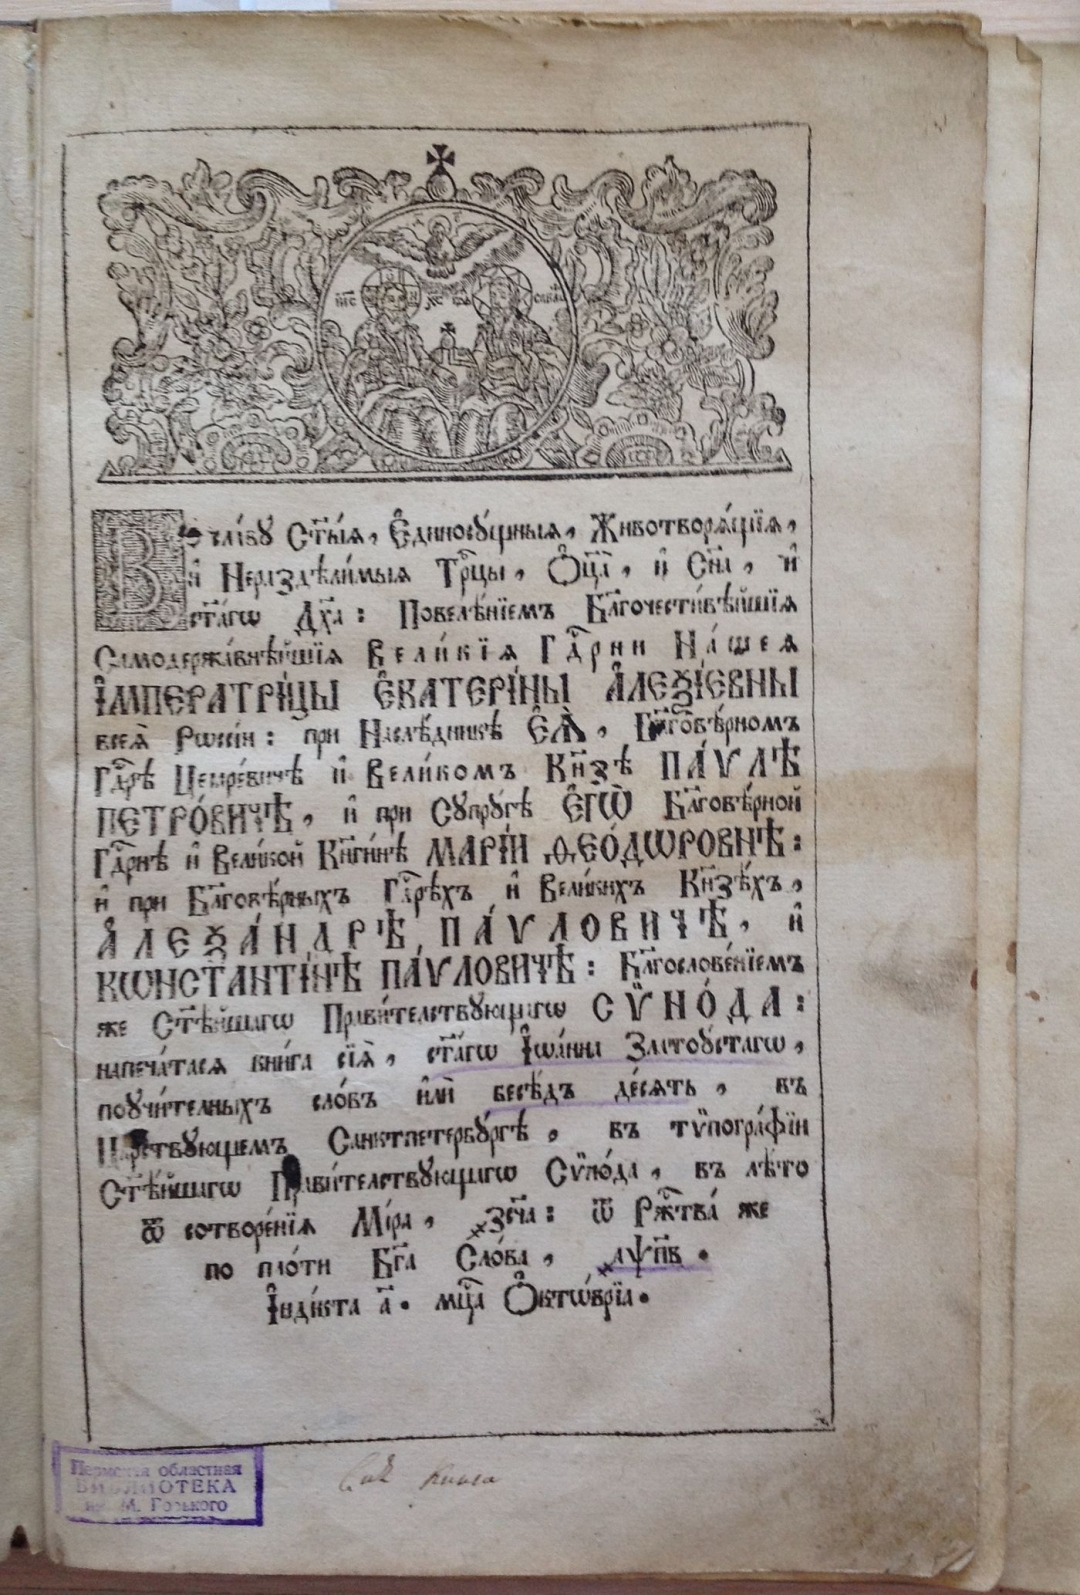 Во сла́вꙋ Ст҃ы́ѧ, Є҆диносꙋ́щныѧ, Животворѧ́щїѧ,
и҆ Нераздѣли́мыѧ Трⷪ҇цы, Ѻ҆ц҃а̀, и҆ Сн҃а, и҆
ст҃а́гѡ Дх҃а: Повелѣ́нїемъ Бл҃гочести́вѣйшїѧ
Самодержа́внѣйшїѧ Вели́кїѧ Гдⷭ҇рни На́шеѧ
І҆МПЕРАТРИ́ЦЫ Є҆КАТЕРІ́НЫ А҆ЛЕѮІ́ЕВНЫ
всеѧ̀ Рѡссі́и: при Наслѣ́дникѣ Є҆Ѧ̀, Бл҃говѣ́рномъ
Гдⷭ҇рѣ Цесаре́вичѣ и҆ Вели́комъ Кн҃зѣ ПА́ѴЛѢ
ПЕТРО́ВИЧѢ, и҆ при Сꙋпрꙋ́гѣ Є҆ГѠ̀ Бл҃говѣ́рной
Гдⷭ҇рнѣ и҆ Вели́кой Кн҃ги́нѣ МАРІ́И Ѳ҆ЕО́ДѠРОВНѢ:
и҆ при Бл҃говѣ́рныхъ Гдⷭ҇рѣхъ и҆ Вели́кихъ Кн҃зѣ́хъ,
А҆ЛЕѮА́НДРѢ ПА́ѴЛОВИЧѢ, и҆
КѠНСТАНТІ́НѢ ПА́ѴЛОВИЧѢ: Бл҃гослове́нїемъ
же Ст҃ѣ́йшагѡ Прави́телствꙋющагѡ СѴ̈НО́ДА:
напеча́тасѧ кни́га сїѧ̀, ст҃а́гѡ І҆ѡа́нна Златоꙋ́стагѡ,
поꙋчи́телныхъ сло́въ и҆лѝ бесѣ́дъ де́сѧть, въ
Ца́рствꙋющемъ Санктпетербꙋ́ргѣ, въ тѷпогра́фїи
Ст҃ѣ́йшагѡ Прави́телствꙋющагѡ Сѷно́да, въ лѣ́то
ѿ сотворе́нїѧ Мі́ра, ҂зс҃ча: ѿ Рж҃тва́ же
по пло́ти Бг҃а Сло́ва, ҂аѱ҃пв.
І҆ндı́кта а҃. мц҃а Ѻ҆ктѡ́врїа.
Пермская областная
БИБЛИОТЕКА
им. М. Горького
книга